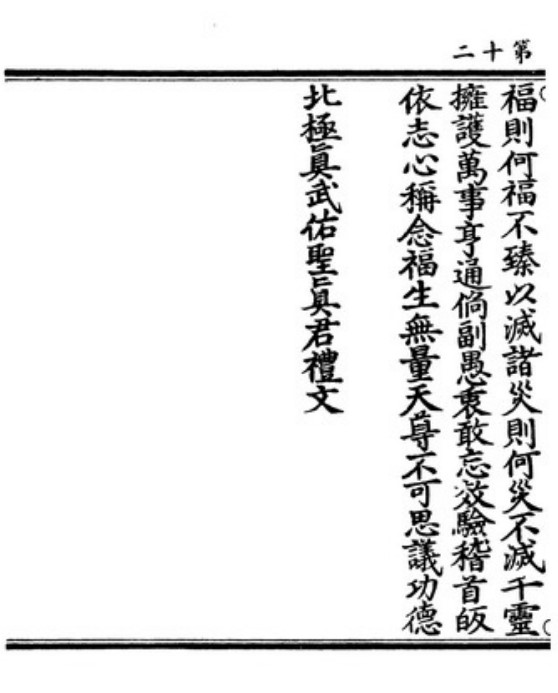 第十二
福則何福不臻以滅諸災則何災不滅千靈
擁護萬事亨通倘副愚衷敢忘效驗稽首皈
依志心稱念福生無量天尊不可思議功德
北極眞武佑聖眞君禮文